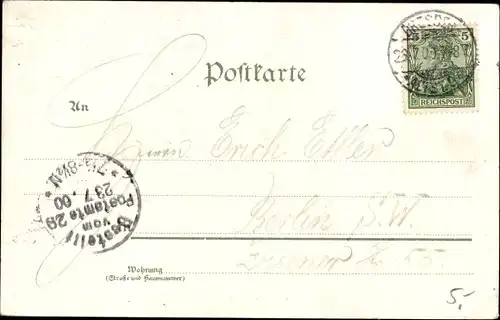 Postkarte
5 5
REICHSPOST
An
Herrn Erich
Berlin S.W.
55
Wohnung
(Straße und Hausnummer)
Bestellt
vom
Postamte 29
23 7. 00
7½-8½N
5,-